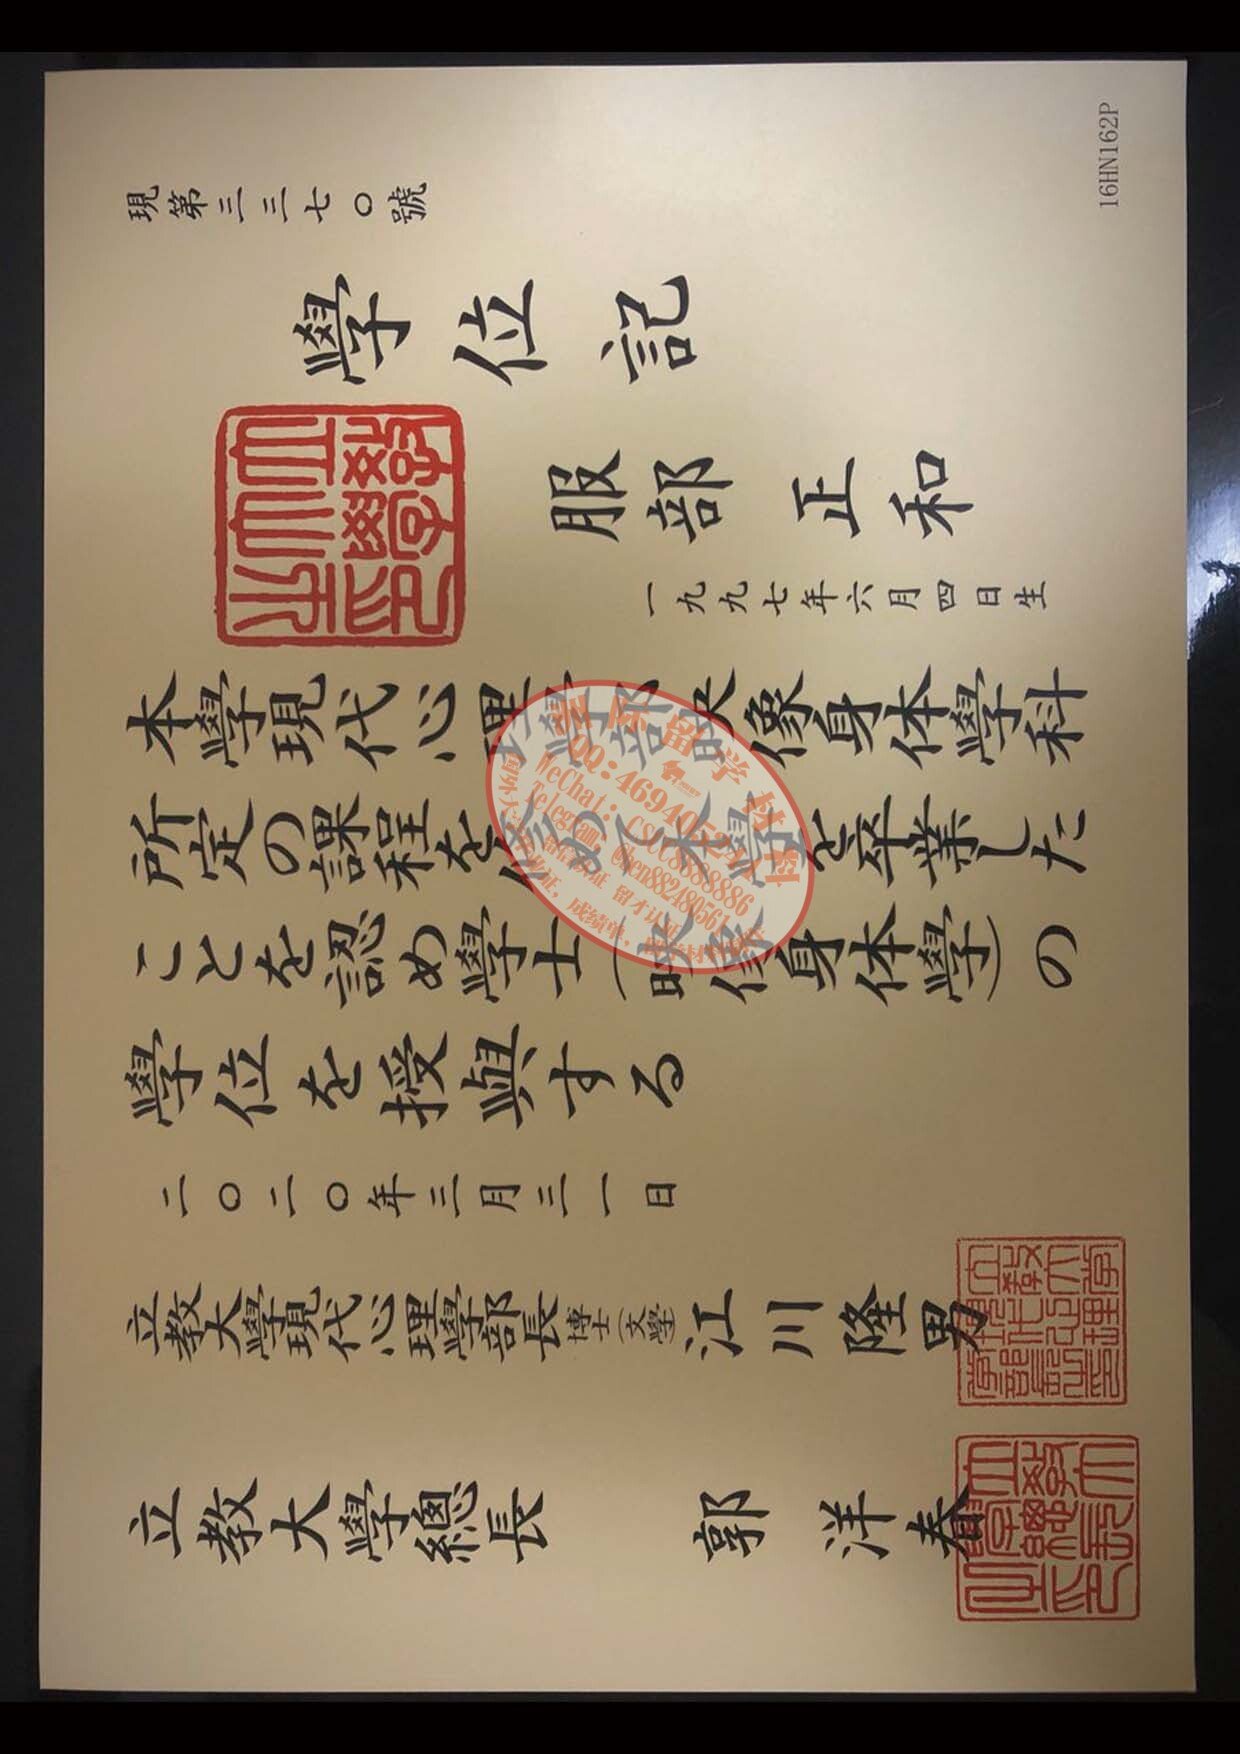 現第三三七〇號
學位記
服部 正和
一九九七年六月四日生
本學現代心理學部映像身体學科
所定の課程を修めて本學を卒業した
ことを認め學士(映像身体學)の
學位を授與する
二〇二〇年三月三一日
立教大學現代心理學部長 博士(文學) 江川隆男
立教大學總長 郭洋春
16HN162P
留学材料
WeChat: CSCC8888886